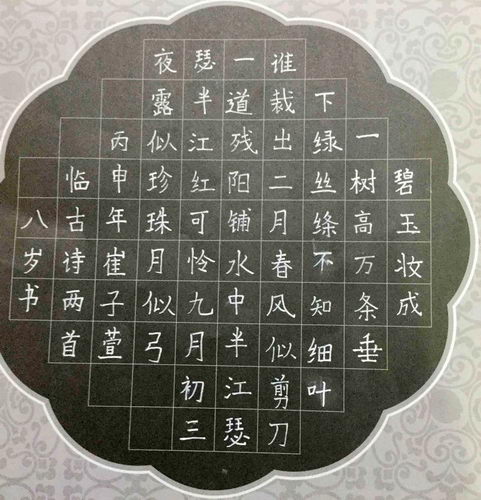 碧玉妆成
一树高万条垂
下绿丝绦不知细叶
谁裁出二月春风似剪刀
一道残阳铺水中半江瑟
瑟半江红可怜九月初三
夜露似珍珠月似弓
丙申年崔子萱
临古诗两首
八岁书